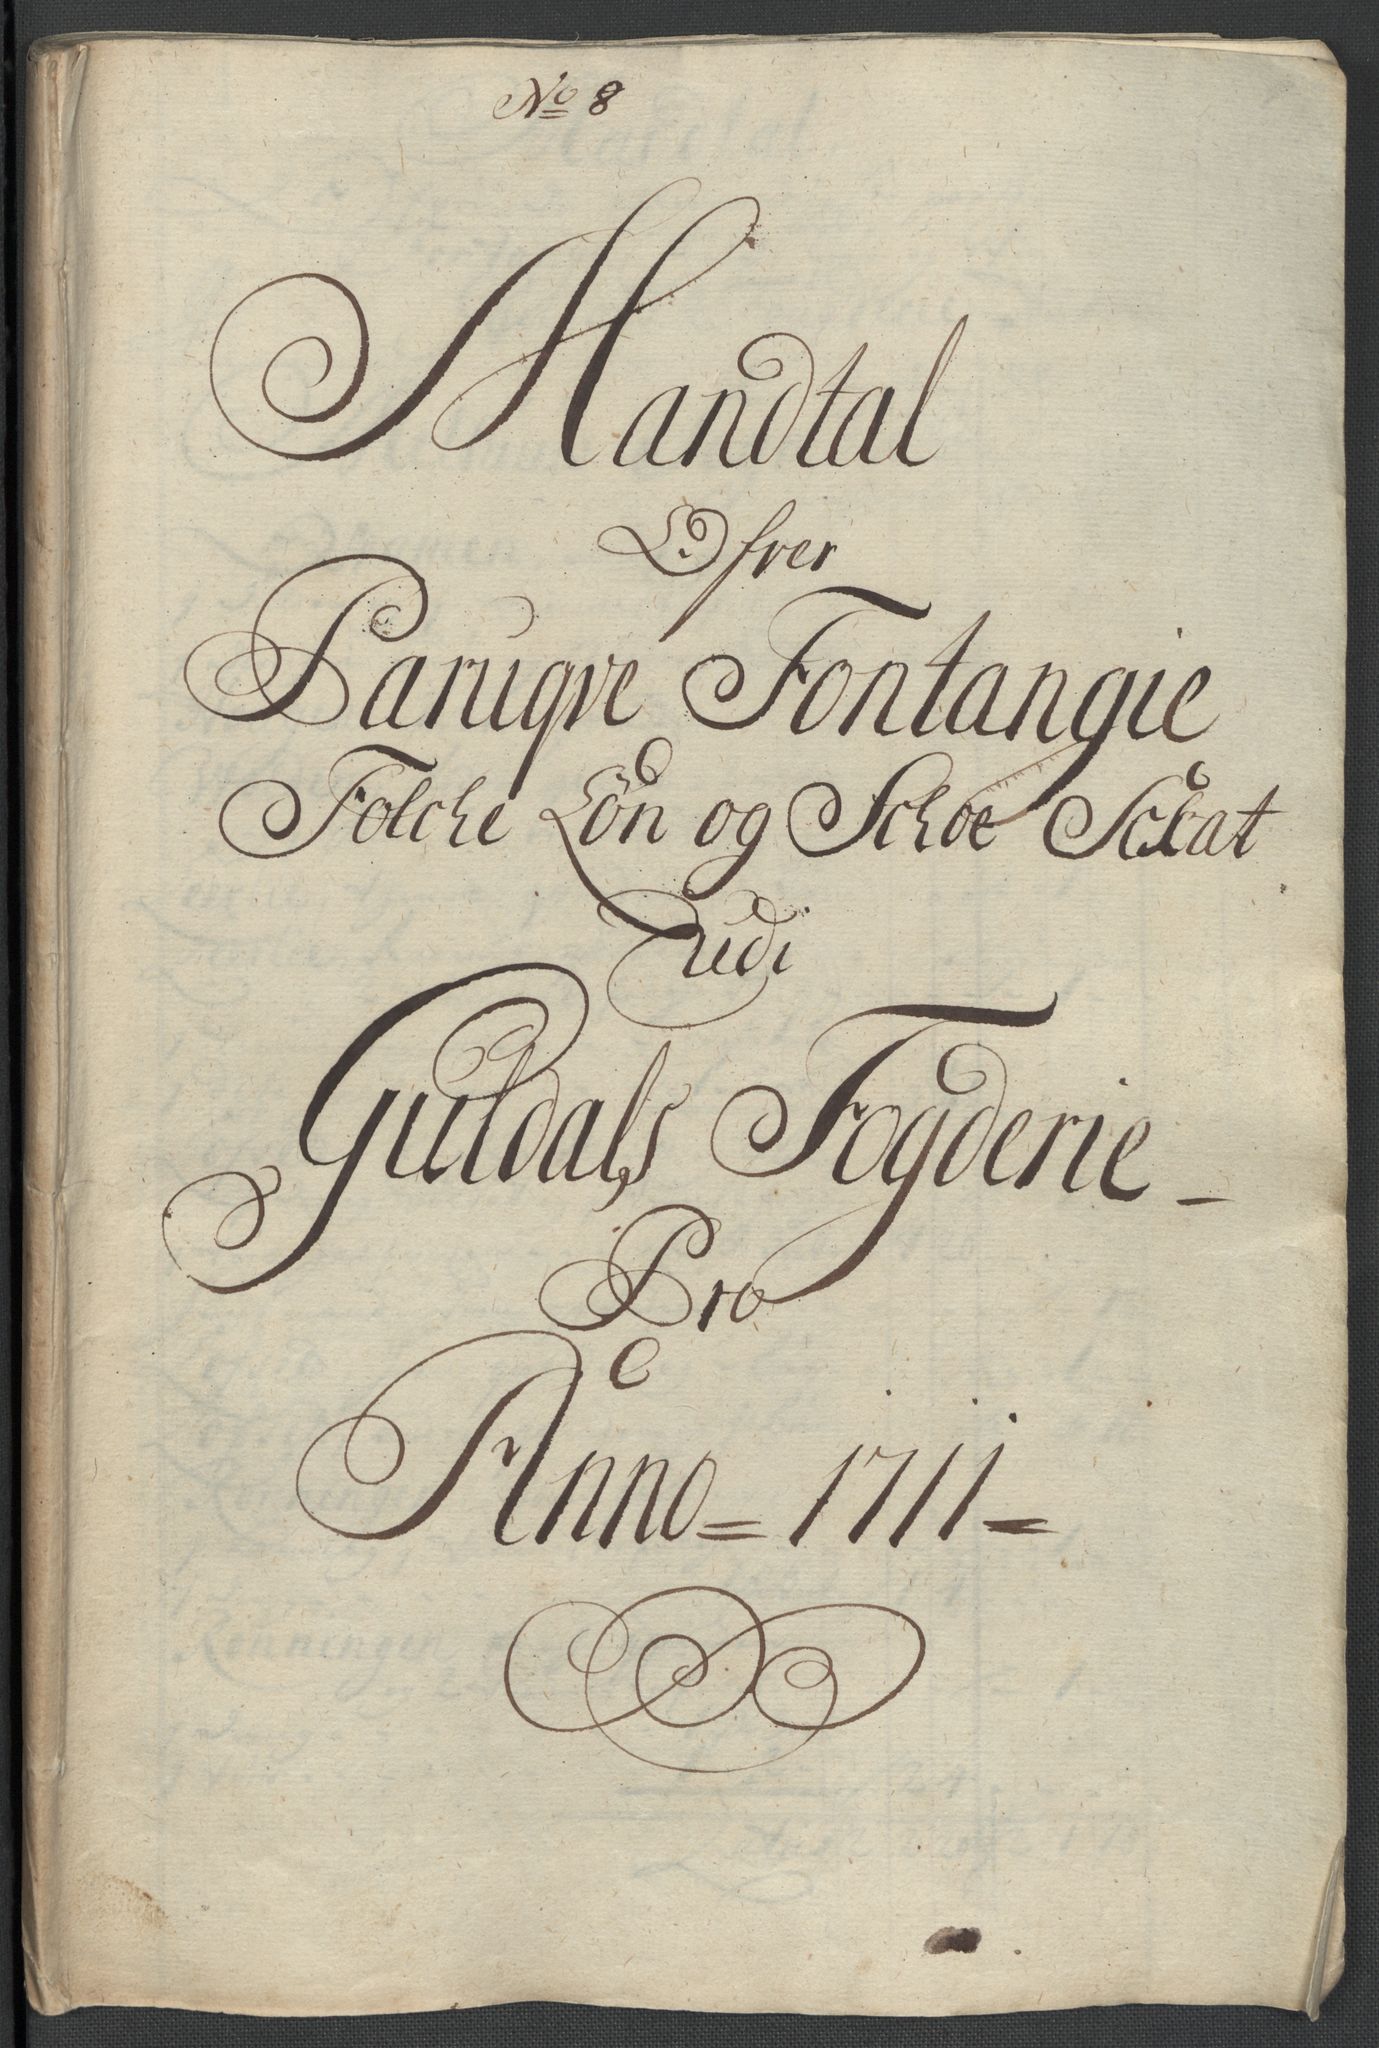 No 8
Mandtal
Ofver
Paruqve Fontangie
Folche Løn og Schoe Schat
udi
Guldals Fogderie
Pro
Anno = 1711 =